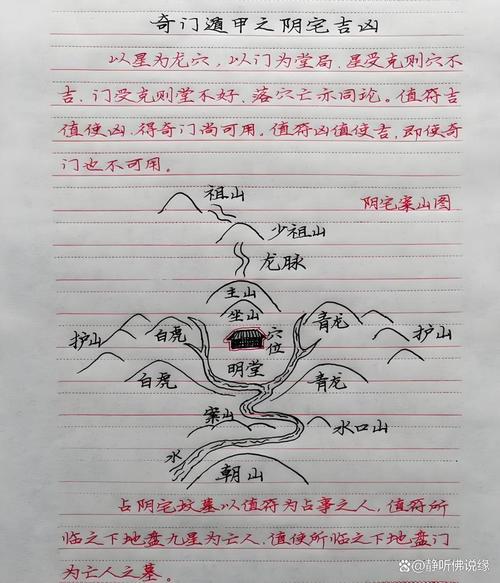 奇门遁甲之阴宅吉凶
以星为龙穴，以门为堂局．星受克则穴不
吉．门受克则堂不好．落穴亡亦同论。值符吉
值使凶．得奇门尚可用。值符凶值使吉，即使奇
门也不可用。
祖山
阴宅案山图
少祖山
龙脉
主山
坐山
护山
白虎
穴位
青龙
护山
明堂
白虎
青龙
案山
水口山
水
朝山
占阴宅坟墓以值符为占事之人，值符所
临之下地盘九星为亡人．值使所临之下地盘门
为亡人之墓。
@静听佛说缘